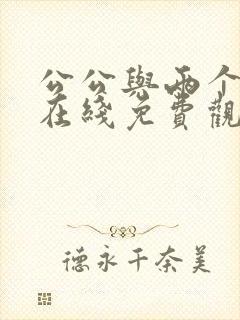 公公與兩个
在綫免費觀
德永千奈美